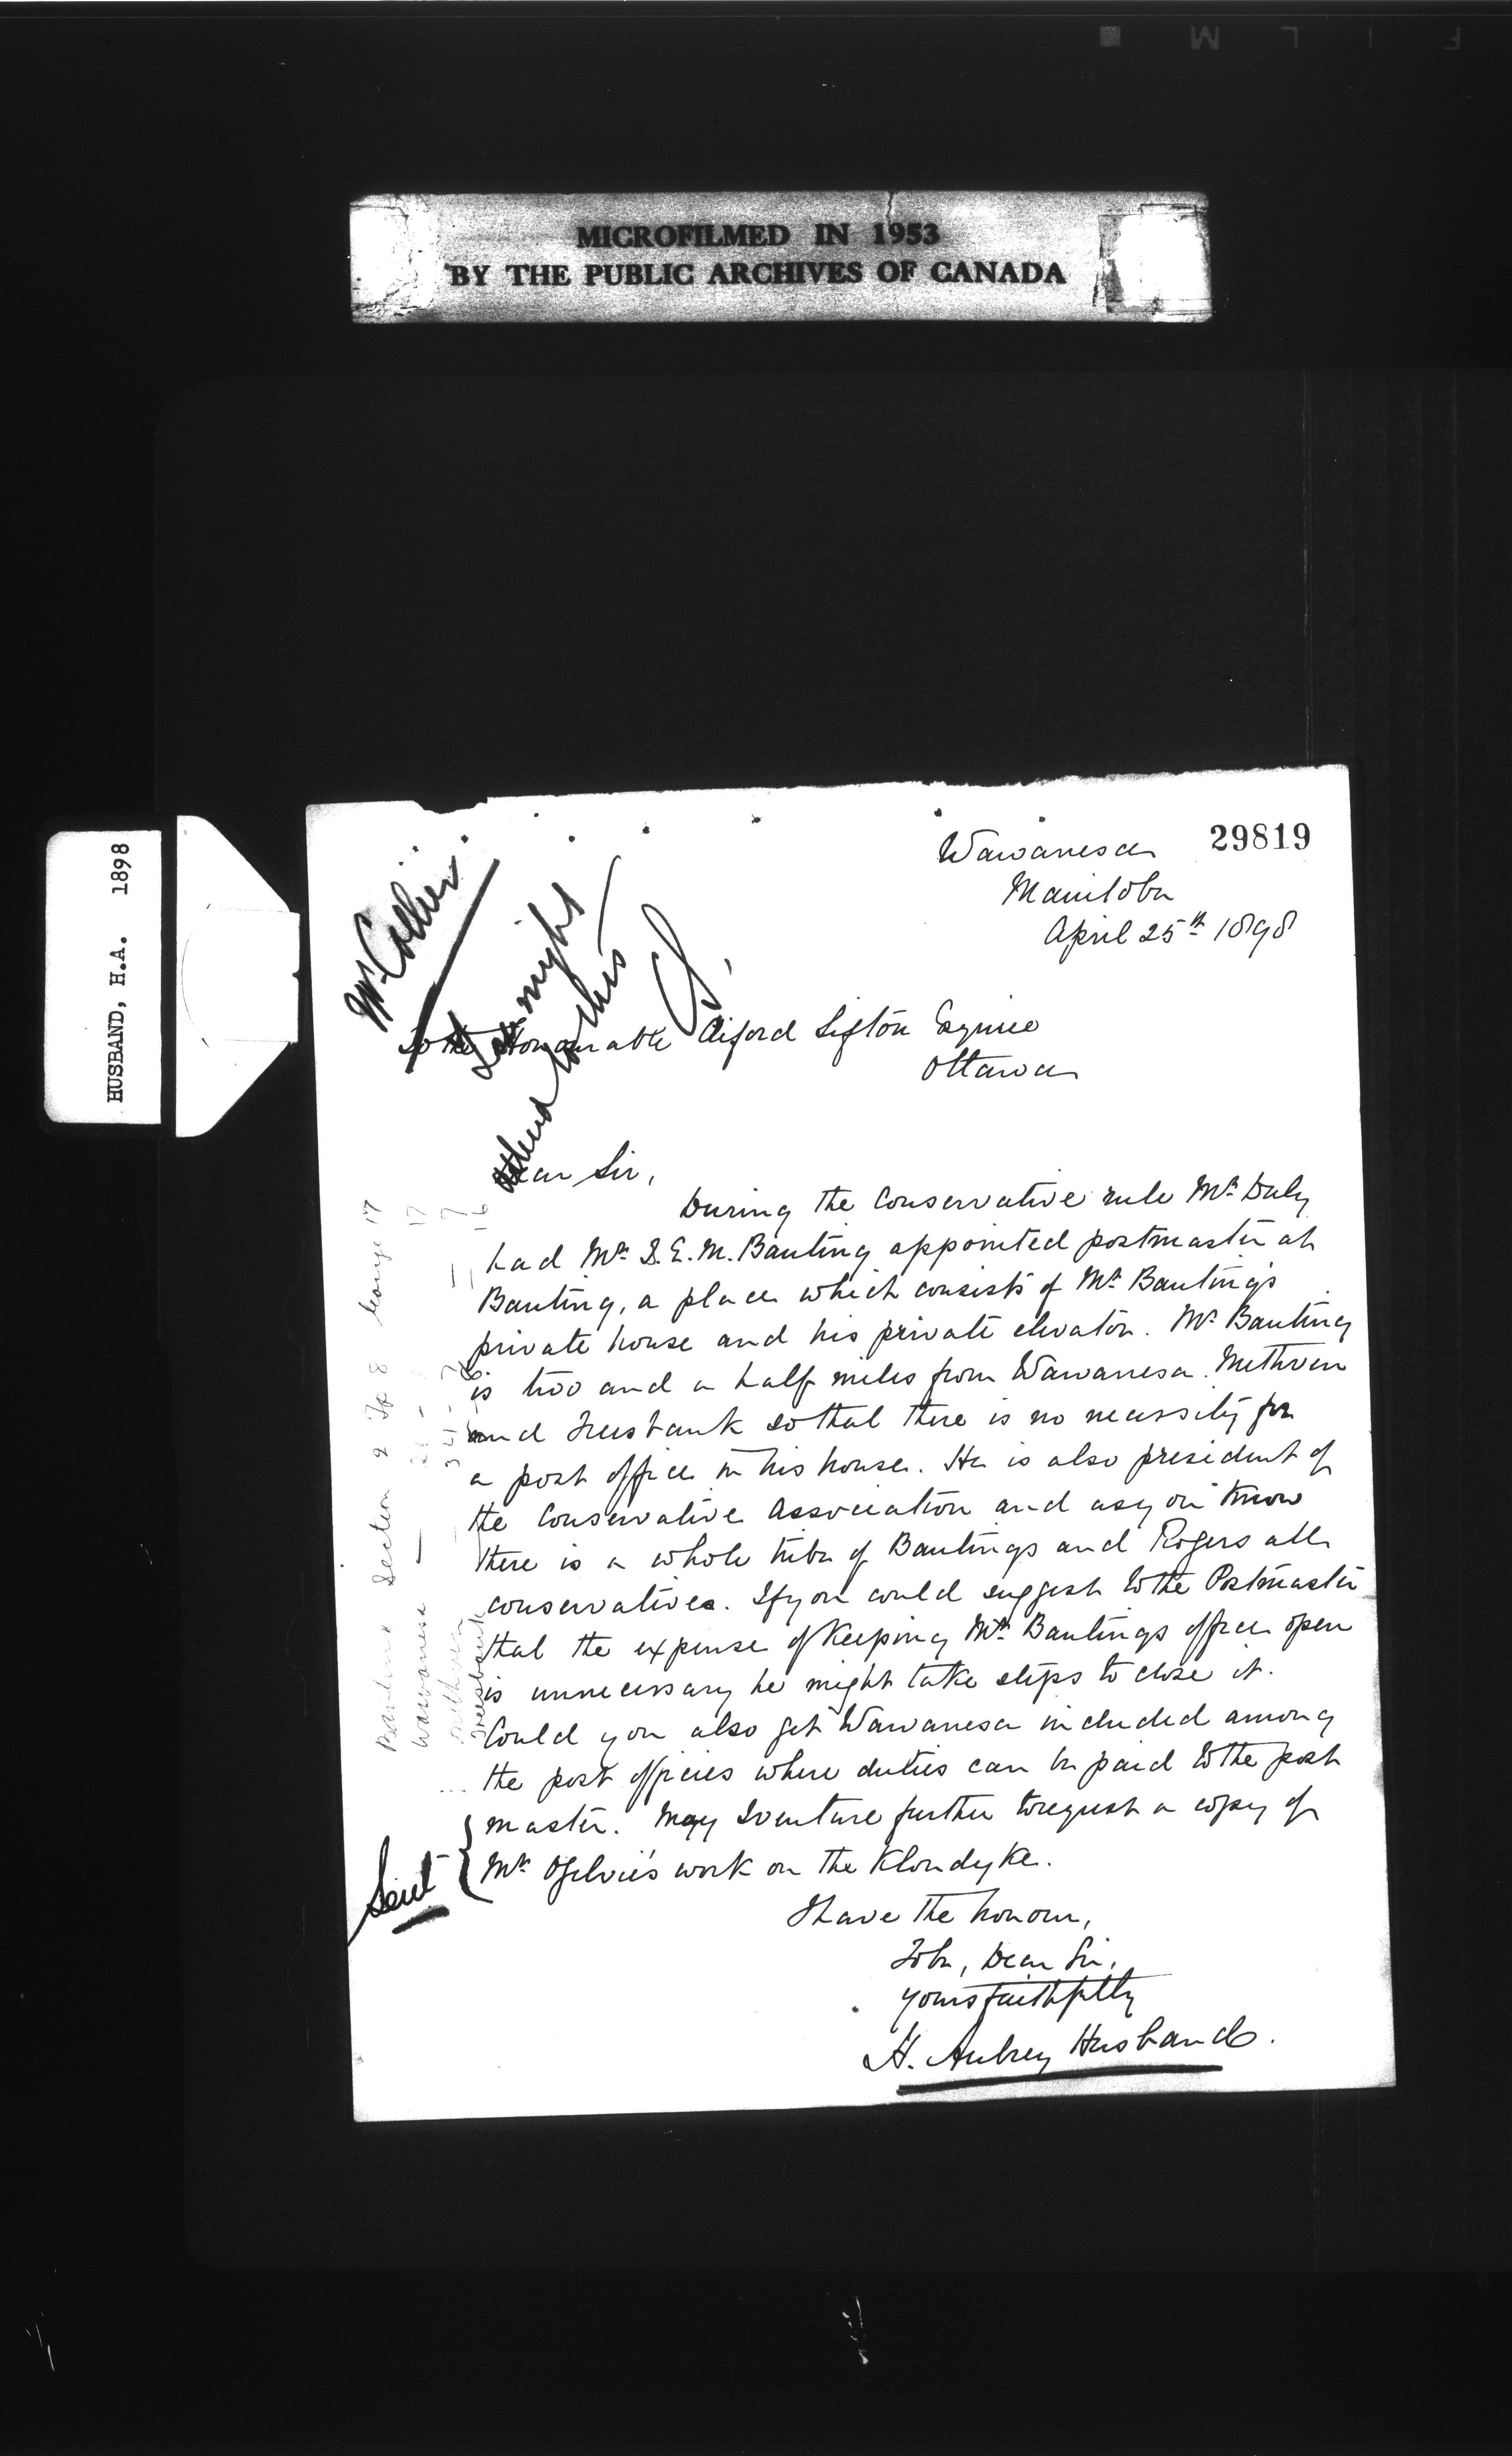 F I L M
MICROFILMED IN 1953
BY THE PUBLIC ARCHIVES OF CANADA
HUSBAND, H.A. 1898
29819
Wawanesa
Manitoba
April 25th 1898
attend to this
To the Honourable Clifford Sifton Esquire
Ottawa
Dear Sir,
During the Conservative rule Mr Daly
had Mr S.E.M. Banting appointed postmaster at
Banting, a place which consists of Mr Banting's
private house and his private elevator. Mr Banting
is two and a half miles from Wawanesa. Methven
and Treesbank so that there is no necessity for
a post office in his house. He is also president of
the Conservative Association and as you know
there is a whole tribe of Bantings and Rogers all
conservatives. If you could suggest to the Postmaster
that the expense of keeping Mr Bantings office open
is unnecessary he might take steps to close it.
Could you also get Wawanesa included among
the post offices where duties can be paid to the post
master. May I venture further to request a copy of
Mr Ogilvie's work on the Klondyke.
Sent
I have the honour,
To be, Dear Sir,
yours faithfully
H. Aubrey Husband.
Section 2 Tp 8 Range 17
Wawanesa
Treesbank